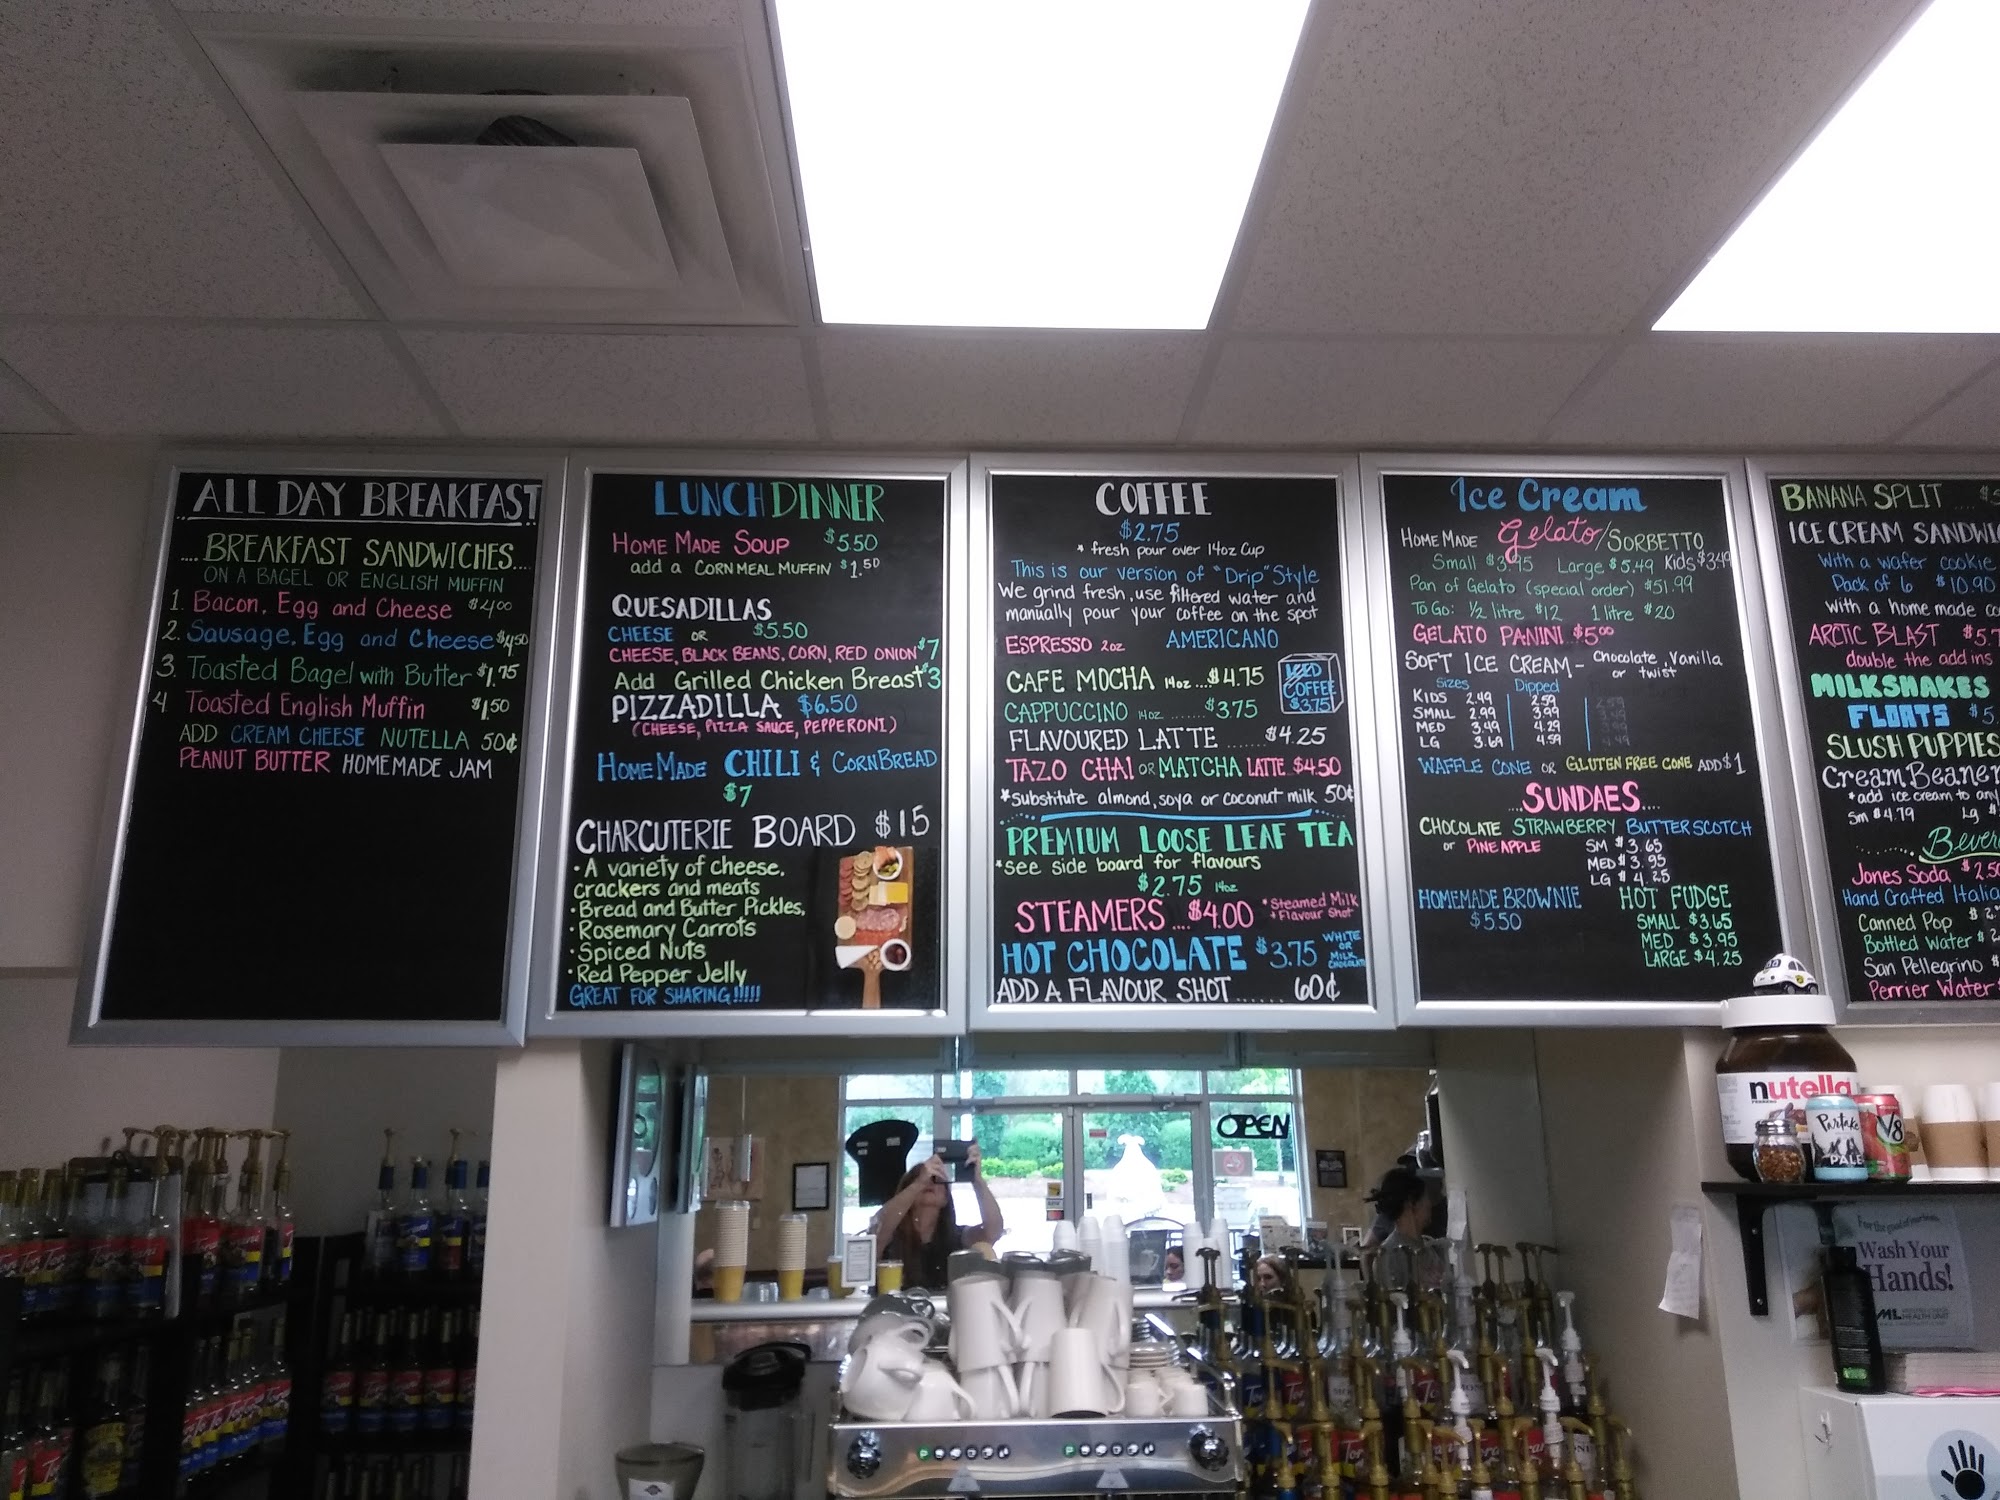 ALL DAY BREAKFAST
....BREAKFAST SANDWICHES....
ON A BAGEL OR ENGLISH MUFFIN
1. Bacon, Egg and Cheese $4.00
2. Sausage, Egg and Cheese $4.50
3. Toasted Bagel with Butter $1.75
4. Toasted English Muffin $1.50
ADD CREAM CHEESE NUTELLA 50¢
PEANUT BUTTER HOMEMADE JAM
LUNCH DINNER
HOME MADE SOUP $5.50
add a CORNMEAL MUFFIN $1.50
QUESADILLAS
CHEESE OR $5.50
CHEESE, BLACK BEANS, CORN, RED ONION $7
Add Grilled Chicken Breast $3
PIZZADILLA $6.50
(CHEESE, PIZZA SAUCE, PEPPERONI)
HOMEMADE CHILI & CORNBREAD
$7
CHARCUTERIE BOARD $15
• A variety of cheese,
crackers and meats
• Bread and Butter Pickles,
• Rosemary Carrots
• Spiced Nuts
• Red Pepper Jelly
GREAT FOR SHARING!!!!!
COFFEE
$2.75
* fresh pour over 14oz Cup
This is our version of "Drip" Style
We grind fresh, use filtered water and
manually pour your coffee on the spot
ESPRESSO 2oz AMERICANO
CAFE MOCHA 14oz ....$4.75
ICED COFFEE $3.75
CAPPUCCINO 14oz .......$3.75
FLAVOURED LATTE .......$4.25
TAZO CHAI OR MATCHA LATTE $4.50
*substitute almond, soya or coconut milk 50¢
PREMIUM LOOSE LEAF TEA
*see side board for flavours
$2.75 14oz
STEAMERS .... $4.00 *Steamed Milk + Flavour Shot
HOT CHOCOLATE $3.75 WHITE OR MILK CHOCOLATE
ADD A FLAVOUR SHOT ...... 60¢
Ice Cream
HOME MADE Gelato/SORBETTO
Small $3.95 Large $5.49 Kids $3.49
Pan of Gelato (special order) $51.99
To Go: ½ litre $12 1 litre $20
GELATO PANINI $5.00
SOFT ICE CREAM - Chocolate, Vanilla or twist
Sizes Dipped
KIDS 2.49 2.59
SMALL 2.99 3.99
MED 3.49 4.29
LG 3.69 4.59
WAFFLE CONE OR GLUTEN FREE CONE ADD $1
....SUNDAES....
CHOCOLATE STRAWBERRY BUTTERSCOTCH
or PINEAPPLE SM $3.65
MED $3.95
LG $4.25
HOMEMADE BROWNIE HOT FUDGE
$5.50 SMALL $3.65
MED $3.95
LARGE $4.25
BANANA SPLIT
ICE CREAM
With a wafer cookie
Pack of 6 $10.90
with a home made
ARCTIC BLAST
double the add ins
MILKSHAKES
FLOATS
SLUSH PUPPIES
Cream
*add ice cream to any
Sm $4.79 Lg
Jones Soda
Hand Crafted
Canned Pop
Bottled Water
San Pellegrino
Perrier Water
OPEN
nutella
FERRERO
Partake
PALE
V8
Wash Your
Hands!
HEALTH UNIT
Torani